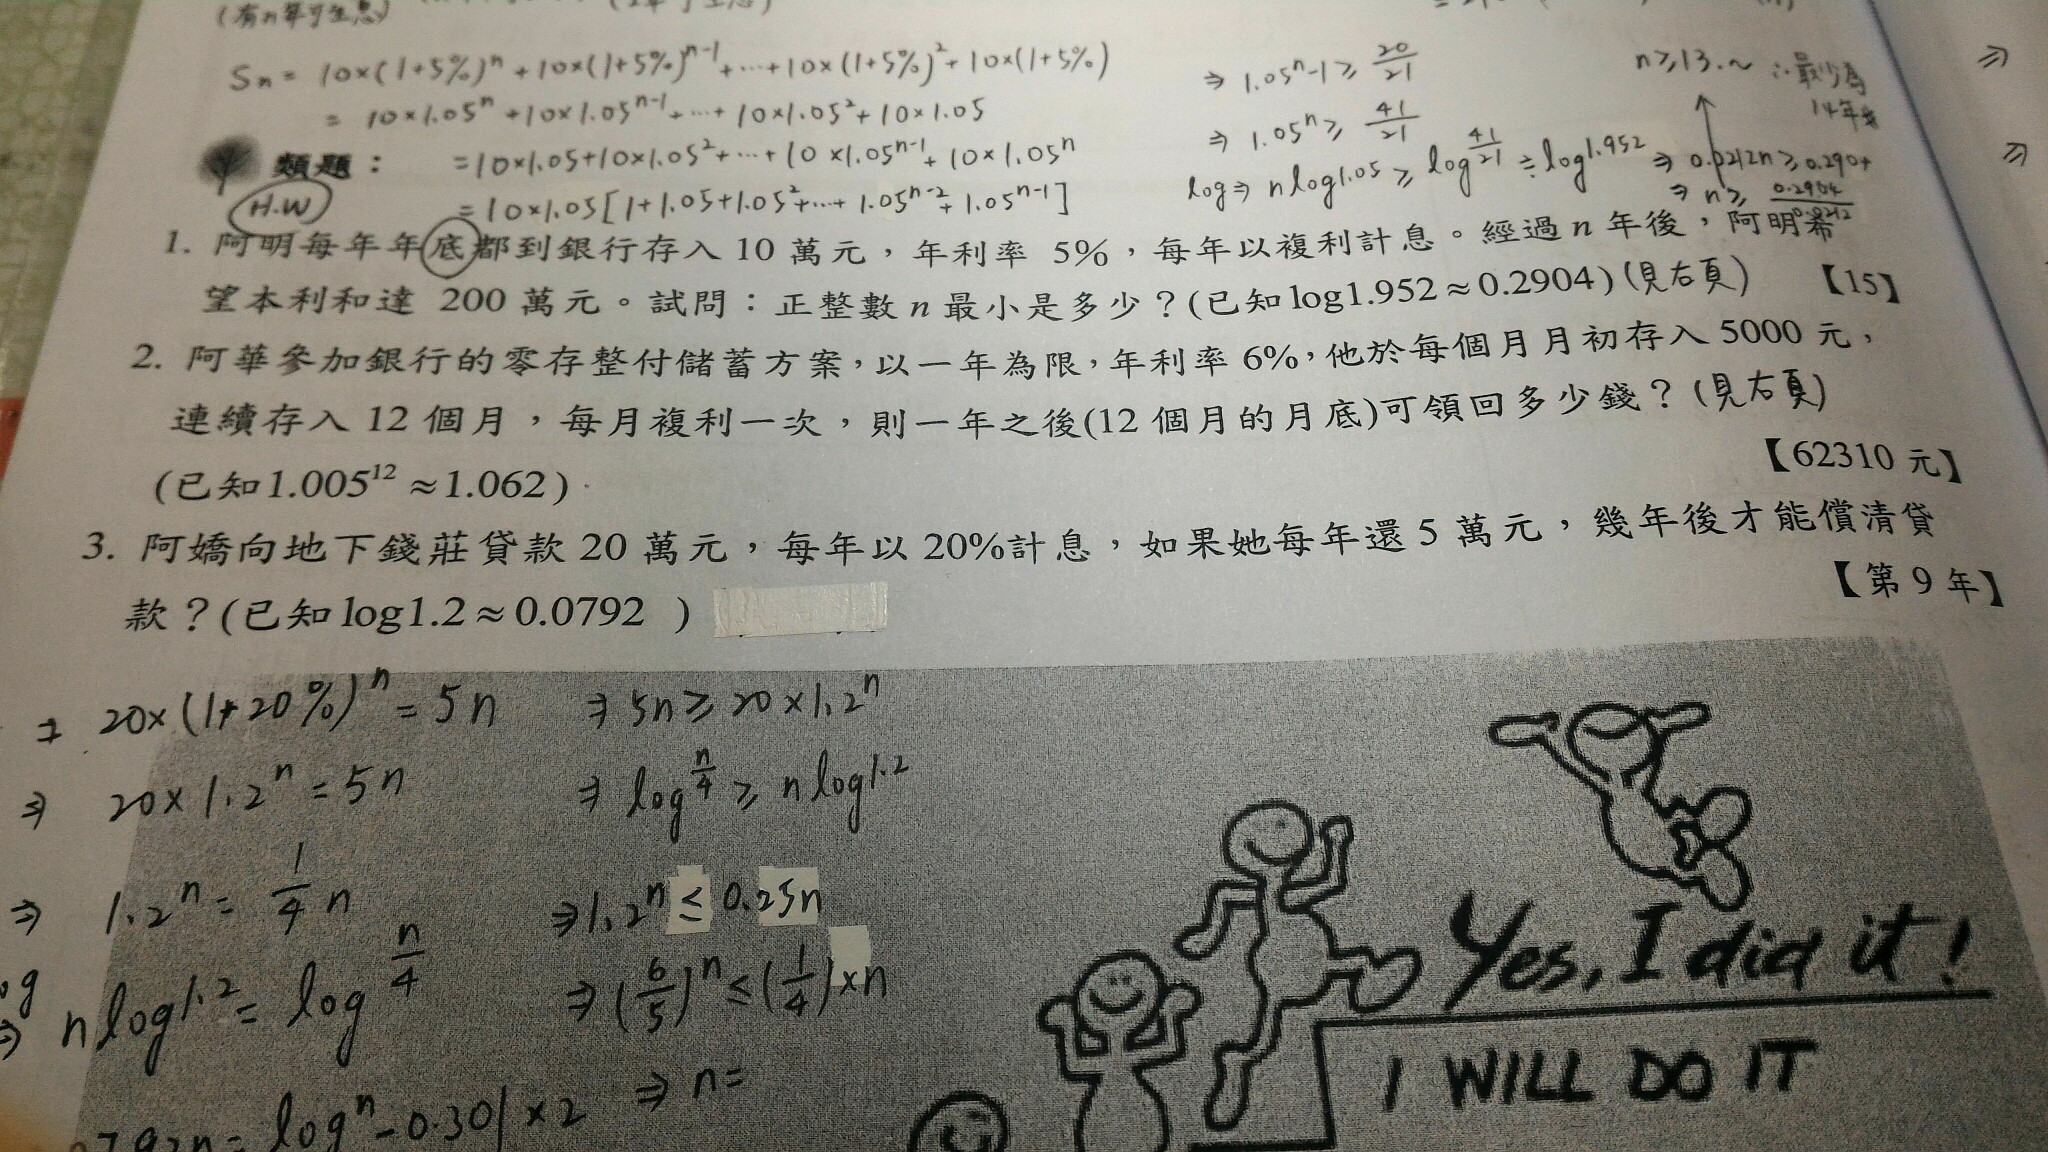 (有n年可生息)
Sn = 10×(1+5%)^n + 10×(1+5%)^(n-1) + … + 10×(1+5%)^2 + 10×(1+5%)
= 10×1.05^n + 10×1.05^(n-1) + … + 10×1.05^2 + 10×1.05
類題：
= 10×1.05+10×1.05^2+…+10×1.05^(n-1)+10×1.05^n
H.W
= 10×1.05[1+1.05+1.05^2+…+1.05^(n-2)+1.05^(n-1)]
⇒ 1.05^n-1 ≥ 20/21
⇒ 1.05^n ≥ 41/21
log⇒ n log1.05 ≥ log 41/21 ≑ log1.952 ⇒ 0.0212n ≥ 0.2904
⇒ n ≥ 0.2904/0.0212
n ≥ 13.~ ∴最少為
14年
1. 阿明每年年底都到銀行存入 10 萬元，年利率 5%，每年以複利計息。經過 n 年後，阿明希
望本利和達 200 萬元。試問：正整數 n 最小是多少？(已知 log1.952≈0.2904) (見右頁) 【15】
2. 阿華參加銀行的零存整付儲蓄方案，以一年為限，年利率 6%，他於每個月月初存入 5000 元，
連續存入 12 個月，每月複利一次，則一年之後(12 個月的月底)可領回多少錢？(見右頁)
(已知1.005^12 ≈1.062) 【62310 元】
3. 阿嬌向地下錢莊貸款 20 萬元，每年以 20%計息，如果她每年還 5 萬元，幾年後才能償清貸
款？(已知 log1.2≈0.0792 ) 【第 9 年】
⇒ 20×(1+20%)^n = 5n
⇒ 20×1.2^n = 5n
⇒ 1.2^n = 1/4 n
log⇒ n log1.2 = log n/4
0792n = log n - 0.301×2
⇒ 5n ≥ 20×1.2^n
⇒ log n/4 ≥ n log1.2
⇒ 1.2^n ≤ 0.25n
⇒ (6/5)^n ≤ (1/4)×n
⇒ n=
Yes, I did it!
I WILL DO IT